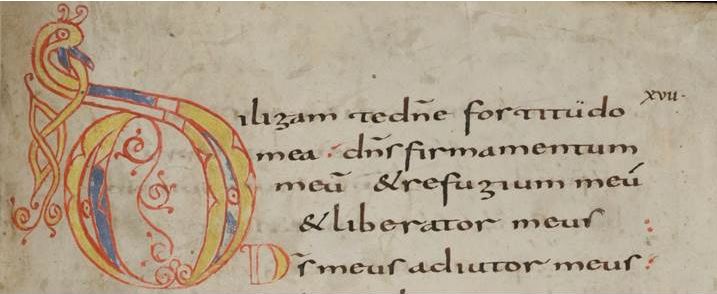 Diligam tedn̄e fortitudo xvii·
mea : dn̄s firmamentum
meū & refugium meū
& liberator meus :
D̄s meus adiutor meus :